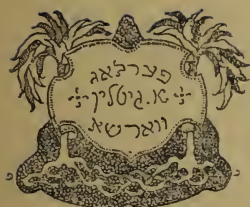 פערלאג
א. גיטלין
ווארשא